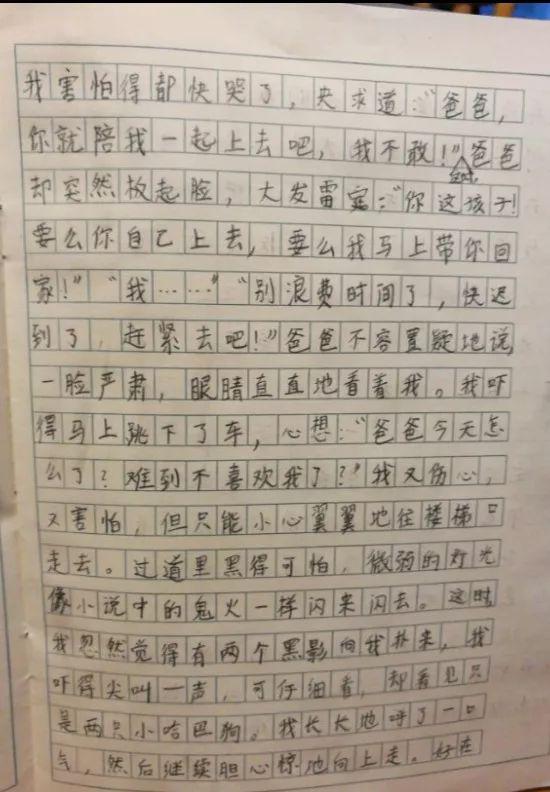 我害怕得都快哭了，央求道：“爸爸，
你就陪我一起上去吧，我不敢！”爸爸
却突然板起脸，大发雷霆：“你这孩子！
要么你自己上去，要么我马上带你回
家！”“我……”“别浪费时间了，快迟
到了，赶紧去吧！”爸爸不容置疑地说，
一脸严肃，眼睛直直地看着我。我吓
得马上跳下了车，心想：“爸爸今天怎
么了？难到不喜欢我了？”我又伤心，
又害怕，但只能小心翼翼地往楼梯口
走去。过道里黑得可怕，微弱的灯光
像小说中的鬼火一样闪来闪去。这时，
我忽然觉得有两个黑影向我扑来，我
吓得尖叫一声，可仔细看，却看见只
是两只小哈巴狗。我长长地呼了一口
气，然后继续胆心惊地向上走。好在